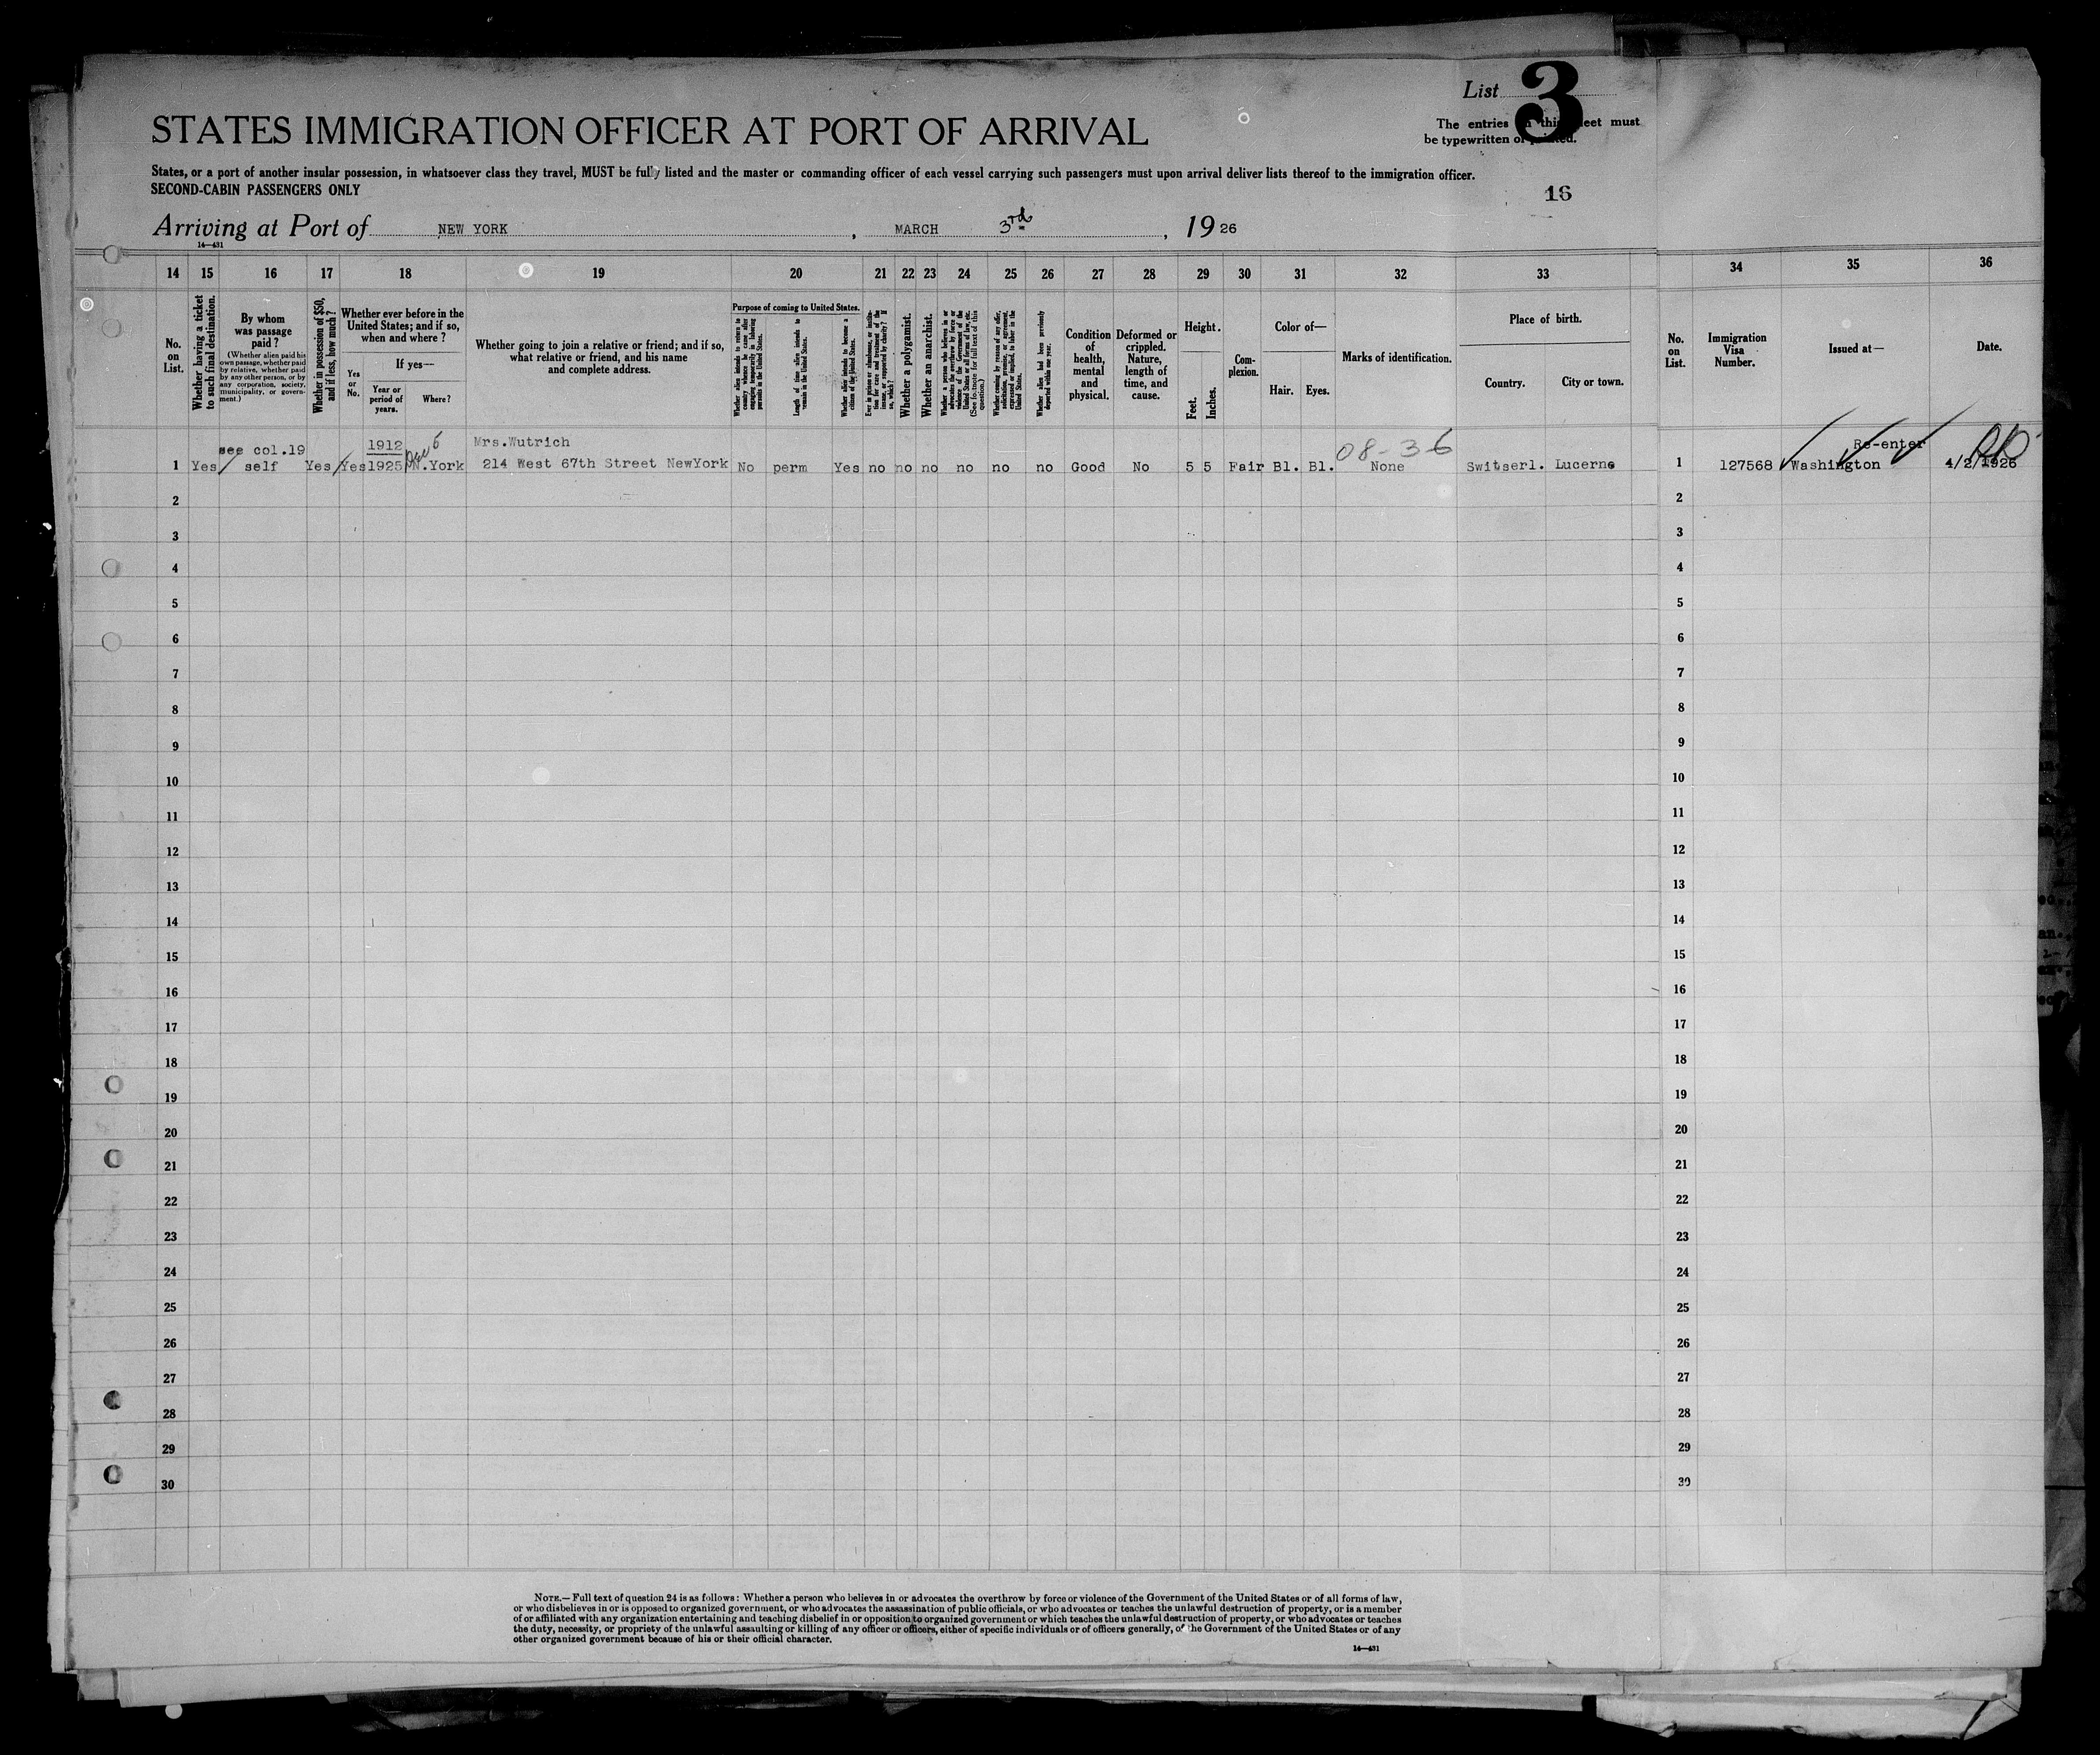 List 3
The entries on this sheet must
be typewritten or printed.
STATES IMMIGRATION OFFICER AT PORT OF ARRIVAL
States, or a port of another insular possession, in whatsoever class they travel, MUST be fully listed and the master or commanding officer of each vessel carrying such passengers must upon arrival deliver lists thereof to the immigration officer.
SECOND-CABIN PASSENGERS ONLY
16
Arriving at Port of NEW YORK, MARCH 3rd, 1926
14—431
14 15 16 17 18 19 20 21 22 23 24 25 26 27 28 29 30 31 32 33 34 35 36
No. on List.
Whether having a ticket to such final destination.
By whom was passage paid?
(Whether alien paid his own passage, whether paid by any other person, or by any corporation, society, municipality, or government.)
Whether in possession of $50, and if less, how much?
Whether ever before in the United States; and if so, when and where?
Yes or No.
If yes—
Year or period of years.
Where?
Whether going to join a relative or friend; and if so, what relative or friend, and his name and complete address.
Purpose of coming to United States.
Whether alien intends to return to country whence he came after engaging temporarily in laboring pursuits in the United States.
Length of time alien intends to remain in the United States.
Whether alien intends to become a citizen of the United States.
Ever in prison or almshouse, or institution for care and treatment of the insane, or supported by charity? If so, which?
Whether a polygamist.
Whether an anarchist.
Whether a person who believes in or advocates the overthrow by force or violence of the Government of the United States or all forms of law, etc. (See footnote for full text of this question.)
Whether coming by reason of any offer, solicitation, promise, or agreement, expressed or implied, to labor in the United States.
Whether alien had been previously deported within one year.
Condition of health, mental and physical.
Deformed or crippled. Nature, length of time, and cause.
Height.
Feet.
Inches.
Complexion.
Color of—
Hair.
Eyes.
Marks of identification.
Place of birth.
Country.
City or town.
No. on List.
Immigration Visa Number.
Issued at—
Date.
see col.19 1912 Mrs.Wutrich 08-3-6 Re-enter
1 Yes self Yes Yes 1925 N.York 214 West 67th Street NewYork No perm Yes no no no no no no Good No 5 5 Fair Bl. Bl. None Switserl. Lucerne 1 127568 Washington 4/2/1926
2 2
3 3
4 4
5 5
6 6
7 7
8 8
9 9
10 10
11 11
12 12
13 13
14 14
15 15
16 16
17 17
18 18
19 19
20 20
21 21
22 22
23 23
24 24
25 25
26 26
27 27
28 28
29 29
30 30
NOTE.—Full text of question 24 is as follows: Whether a person who believes in or advocates the overthrow by force or violence of the Government of the United States or of all forms of law,
or who disbelieves in or is opposed to organized government, or who advocates the assassination of public officials, or who advocates or teaches the unlawful destruction of property, or is a member
of or affiliated with any organization entertaining and teaching disbelief in or opposition to organized government or which teaches the unlawful destruction of property, or who advocates or teaches
the duty, necessity, or propriety of the unlawful assaulting or killing of any officer or officers, either of specific individuals or of officers generally, of the Government of the United States or of any
other organized government because of his or their official character.
14—431